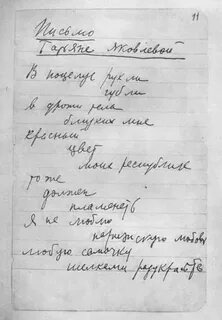 11
Письмо
Татьяне Яковлевой
В поцелуе рук ли
губ ли
в дрожи тела
близких мне
красный
цвет
моих республик
тоже
должен
пламенеть
Я не люблю
парижскую любовь
любую самочку
шелками разукрасьте